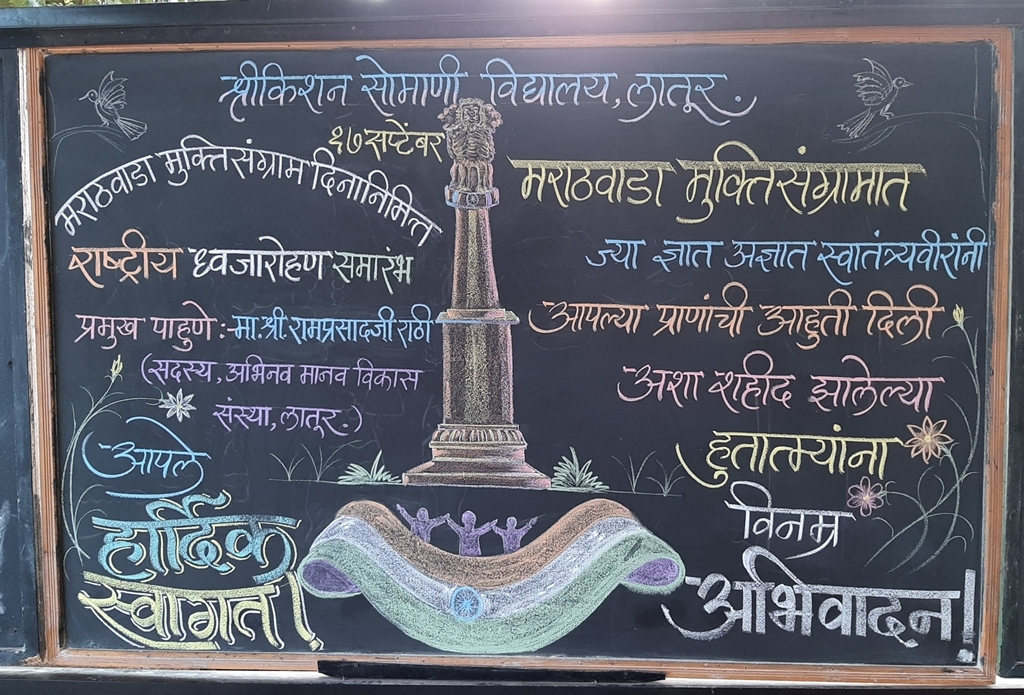 श्रीकिशन सोमाणी विद्यालय, लातूर.
१७ सप्टेंबर
मराठवाडा मुक्तिसंग्राम दिनानिमित्त
राष्ट्रीय ध्वजारोहण समारंभ
प्रमुख पाहुणे :- मा. श्री. रामप्रसादजी राठी
(सदस्य, अभिनव मानव विकास
संस्था, लातूर.)
आपले
हार्दिक
स्वागत!
मराठवाडा मुक्तिसंग्रामात
ज्या ज्ञात अज्ञात स्वातंत्र्यवीरांनी
आपल्या प्राणांची आहुती दिली
अशा शहीद झालेल्या
हुतात्म्यांना
विनम्र
अभिवादन!